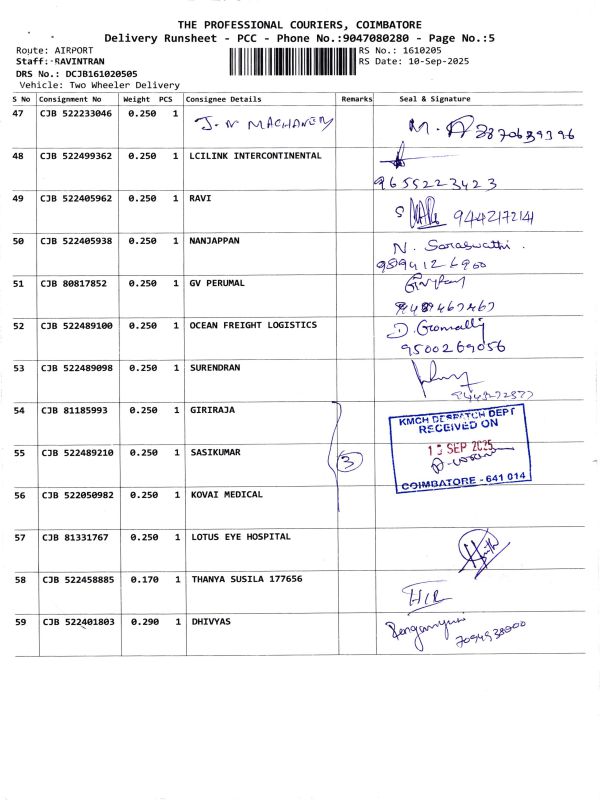 THE PROFESSIONAL COURIERS, COIMBATORE
Delivery Runsheet - PCC - Phone No.:9047080280 - Page No.:5
Route: AIRPORT RS No.: 1610205
Staff: RAVINTRAN RS Date: 10-Sep-2025
DRS No.: DCJB161020505
Vehicle: Two Wheeler Delivery
S No Consignment No Weight PCS Consignee Details Remarks Seal & Signature
47 CJB 522233046 0.250 1 J.N MACHANERY M.
48 CJB 522499362 0.250 1 LCILINK INTERCONTINENTAL
9655223423
49 CJB 522405962 0.250 1 RAVI 9442172141
50 CJB 522405938 0.250 1 NANJAPPAN N. Saraswathi.
9894126900
51 CJB 80817852 0.250 1 GV PERUMAL
9489467467
52 CJB 522489100 0.250 1 OCEAN FREIGHT LOGISTICS
9500269056
53 CJB 522489098 0.250 1 SURENDRAN
54 CJB 81185993 0.250 1 GIRIRAJA
KMCH DESPATCH DEPT
RECEIVED ON
55 CJB 522489210 0.250 1 SASIKUMAR 3 SEP 2025
COIMBATORE - 641 014
56 CJB 522050982 0.250 1 KOVAI MEDICAL
57 CJB 81331767 0.250 1 LOTUS EYE HOSPITAL
58 CJB 522458885 0.170 1 THANYA SUSILA 177656
59 CJB 522401803 0.290 1 DHIVYAS